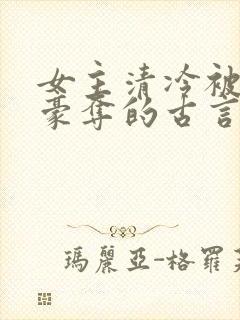 女主清冷被
豪奪的古言
瑪麗亞-格羅